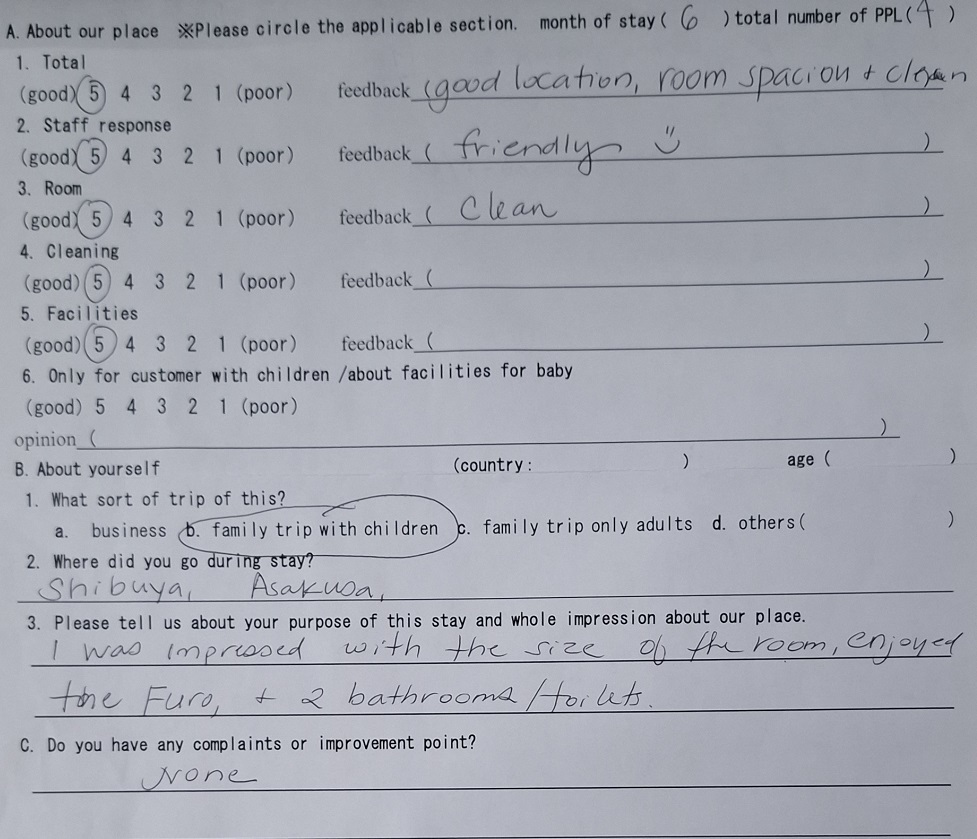 A. About our place ※Please circle the applicable section. month of stay ( 6 ) total number of PPL ( 4 )
1. Total
(good) 5 4 3 2 1 (poor) feedback (good location, room spaciou + clean
2. Staff response
(good) 5 4 3 2 1 (poor) feedback ( friendly )
3. Room
(good) 5 4 3 2 1 (poor) feedback ( Clean )
4. Cleaning
(good) 5 4 3 2 1 (poor) feedback ( )
5. Facilities
(good) 5 4 3 2 1 (poor) feedback ( )
6. Only for customer with children /about facilities for baby
(good) 5 4 3 2 1 (poor)
opinion ( )
B. About yourself (country: ) age ( )
1. What sort of trip of this?
a. business b. family trip with children c. family trip only adults d. others ( )
2. Where did you go during stay?
Shibuya, Asakusa,
3. Please tell us about your purpose of this stay and whole impression about our place.
I was impressed with the size of the room, enjoyed
the Furo, + 2 bathrooms/toilets.
C. Do you have any complaints or improvement point?
None